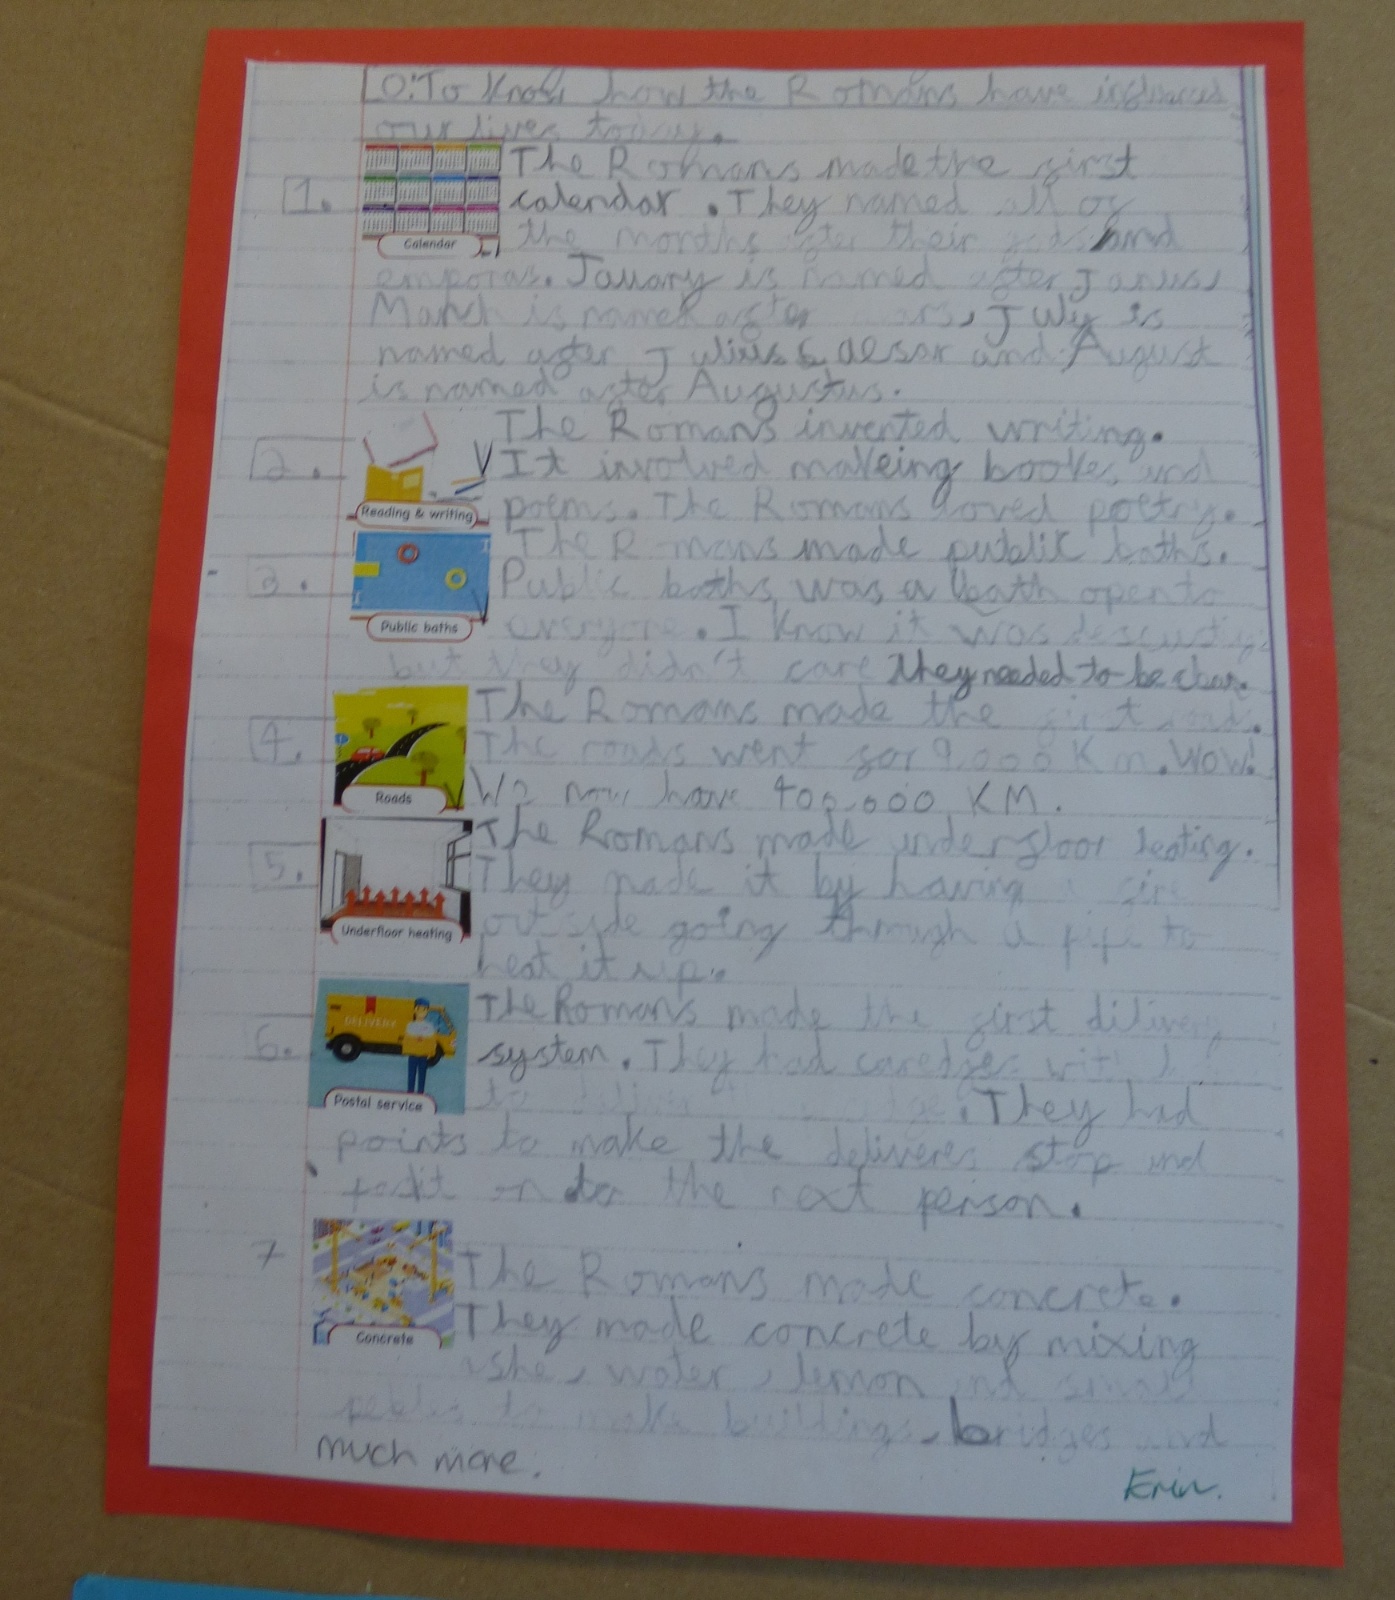 LO: To know how the Romans have influenced
our lives today.
The Romans made the first
1. calendar. They named all of
Calendar
the months after their gods and
emporas. Januory is named after Janus,
March is named after ars, July is
named after Julius Caesar and August
is named after Augustus.
The Romans invented writing.
2. It involved makeing bookes and
Reading & writing
poems. The Romans loved poetry.
The Romans made public baths.
3. Public baths was a bath open to
Public baths
everyone. I know it was
but they didn't care they needed to be clean.
The Romans made the first roads.
4. The roads went for 9,000 Km. Wow!
Roads
We now have 400,000 KM.
The Romans made underfloor heating.
5. They made it by having a fire
Underfloor heating
outside going through a pipe to
heat it up.
The Romans made the first dilivery
DELIVERY
6. system. They had caredges with
Postal service
to . They had
points to make the deliveres stop and
on to the next person.
7 The Romans made concrete.
Concrete
They made concrete by mixing
ashe, water, lemon and small
to make buildings, bridges and
much more.
Erin.